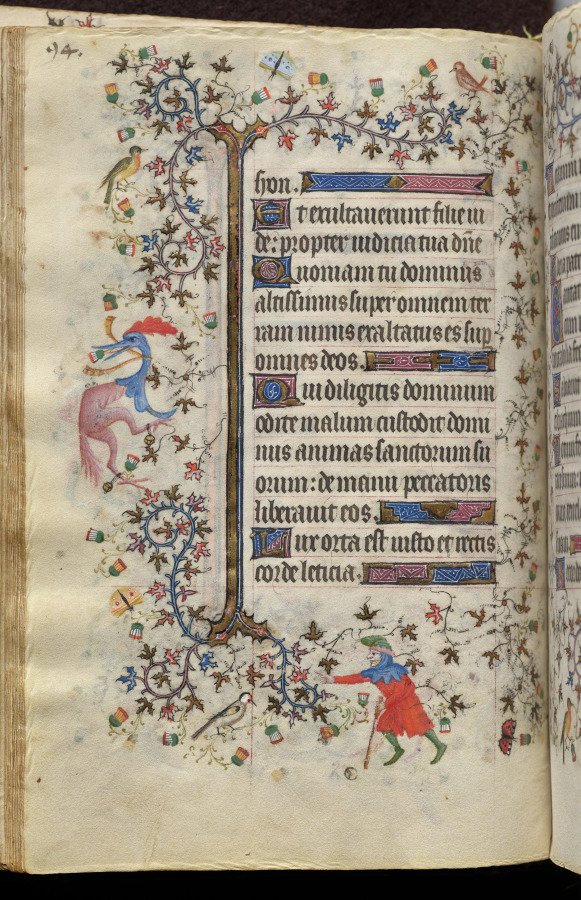 94.
syon.
Et exultauerunt filie iu
de: propter iudicia tua dñe
Quoniam tu dominus
altissimus super omnem ter
ram nimis exaltatus es sup
omnes deos.
Qui diligitis dominum
odite malum custodit domi
nus animas sanctorum su
orum: de manu peccatoris
liberauit eos.
Lux orta est iusto et rectis
corde leticia.